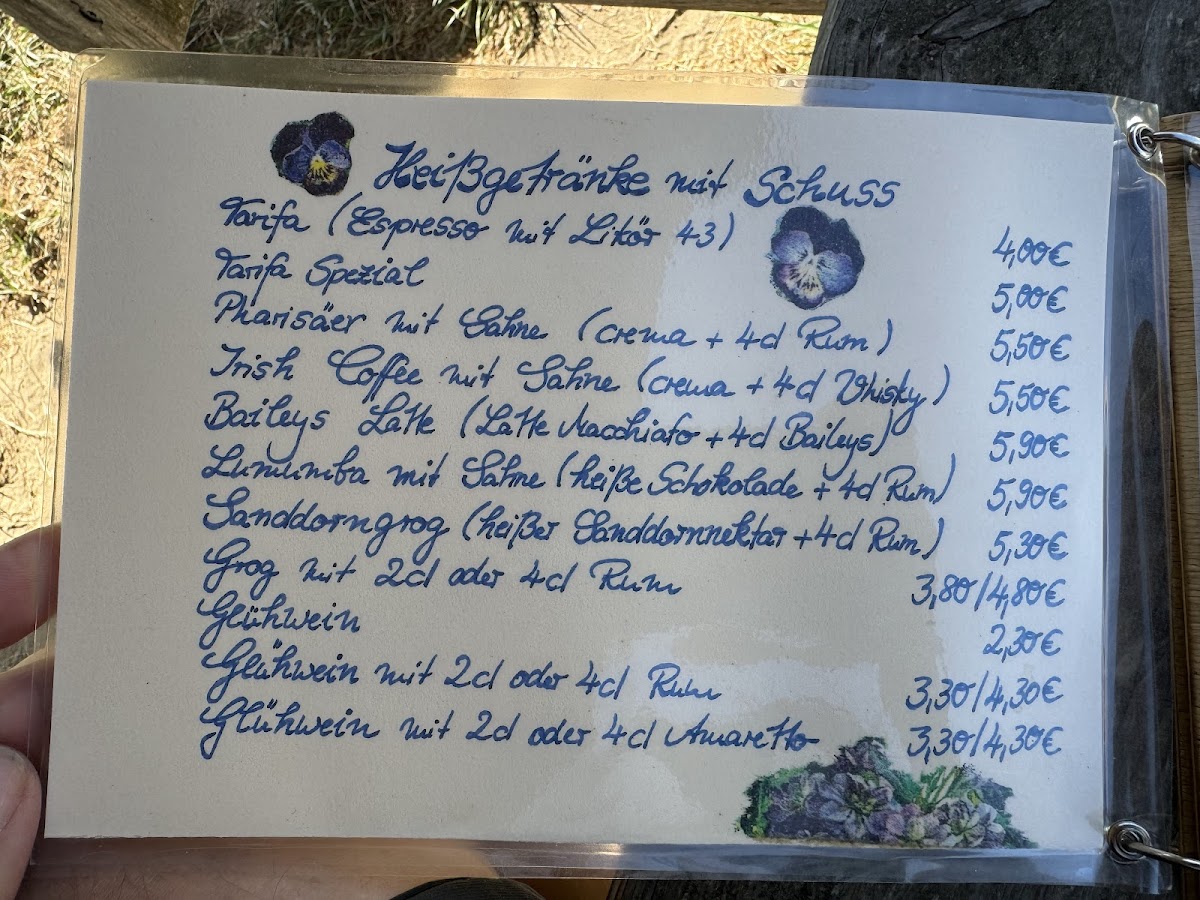 Heißgetränke mit Schuss
Tarifa (Espresso mit Likör 43) 4,00€
Tarifa Spezial 5,00€
Pharisäer mit Sahne (crema + 4cl Rum) 5,50€
Irish Coffee mit Sahne (crema + 4cl Whisky) 5,50€
Baileys Latte (Latte Macchiato + 4cl Baileys) 5,90€
Lumumba mit Sahne (heiße Schokolade + 4cl Rum) 5,90€
Sanddorngrog (heißer Sanddornnektar + 4cl Rum) 5,30€
Grog mit 2cl oder 4cl Rum 3,80/4,80€
Glühwein 2,30€
Glühwein mit 2cl oder 4cl Rum 3,30/4,30€
Glühwein mit 2cl oder 4cl Amaretto 3,30/4,30€